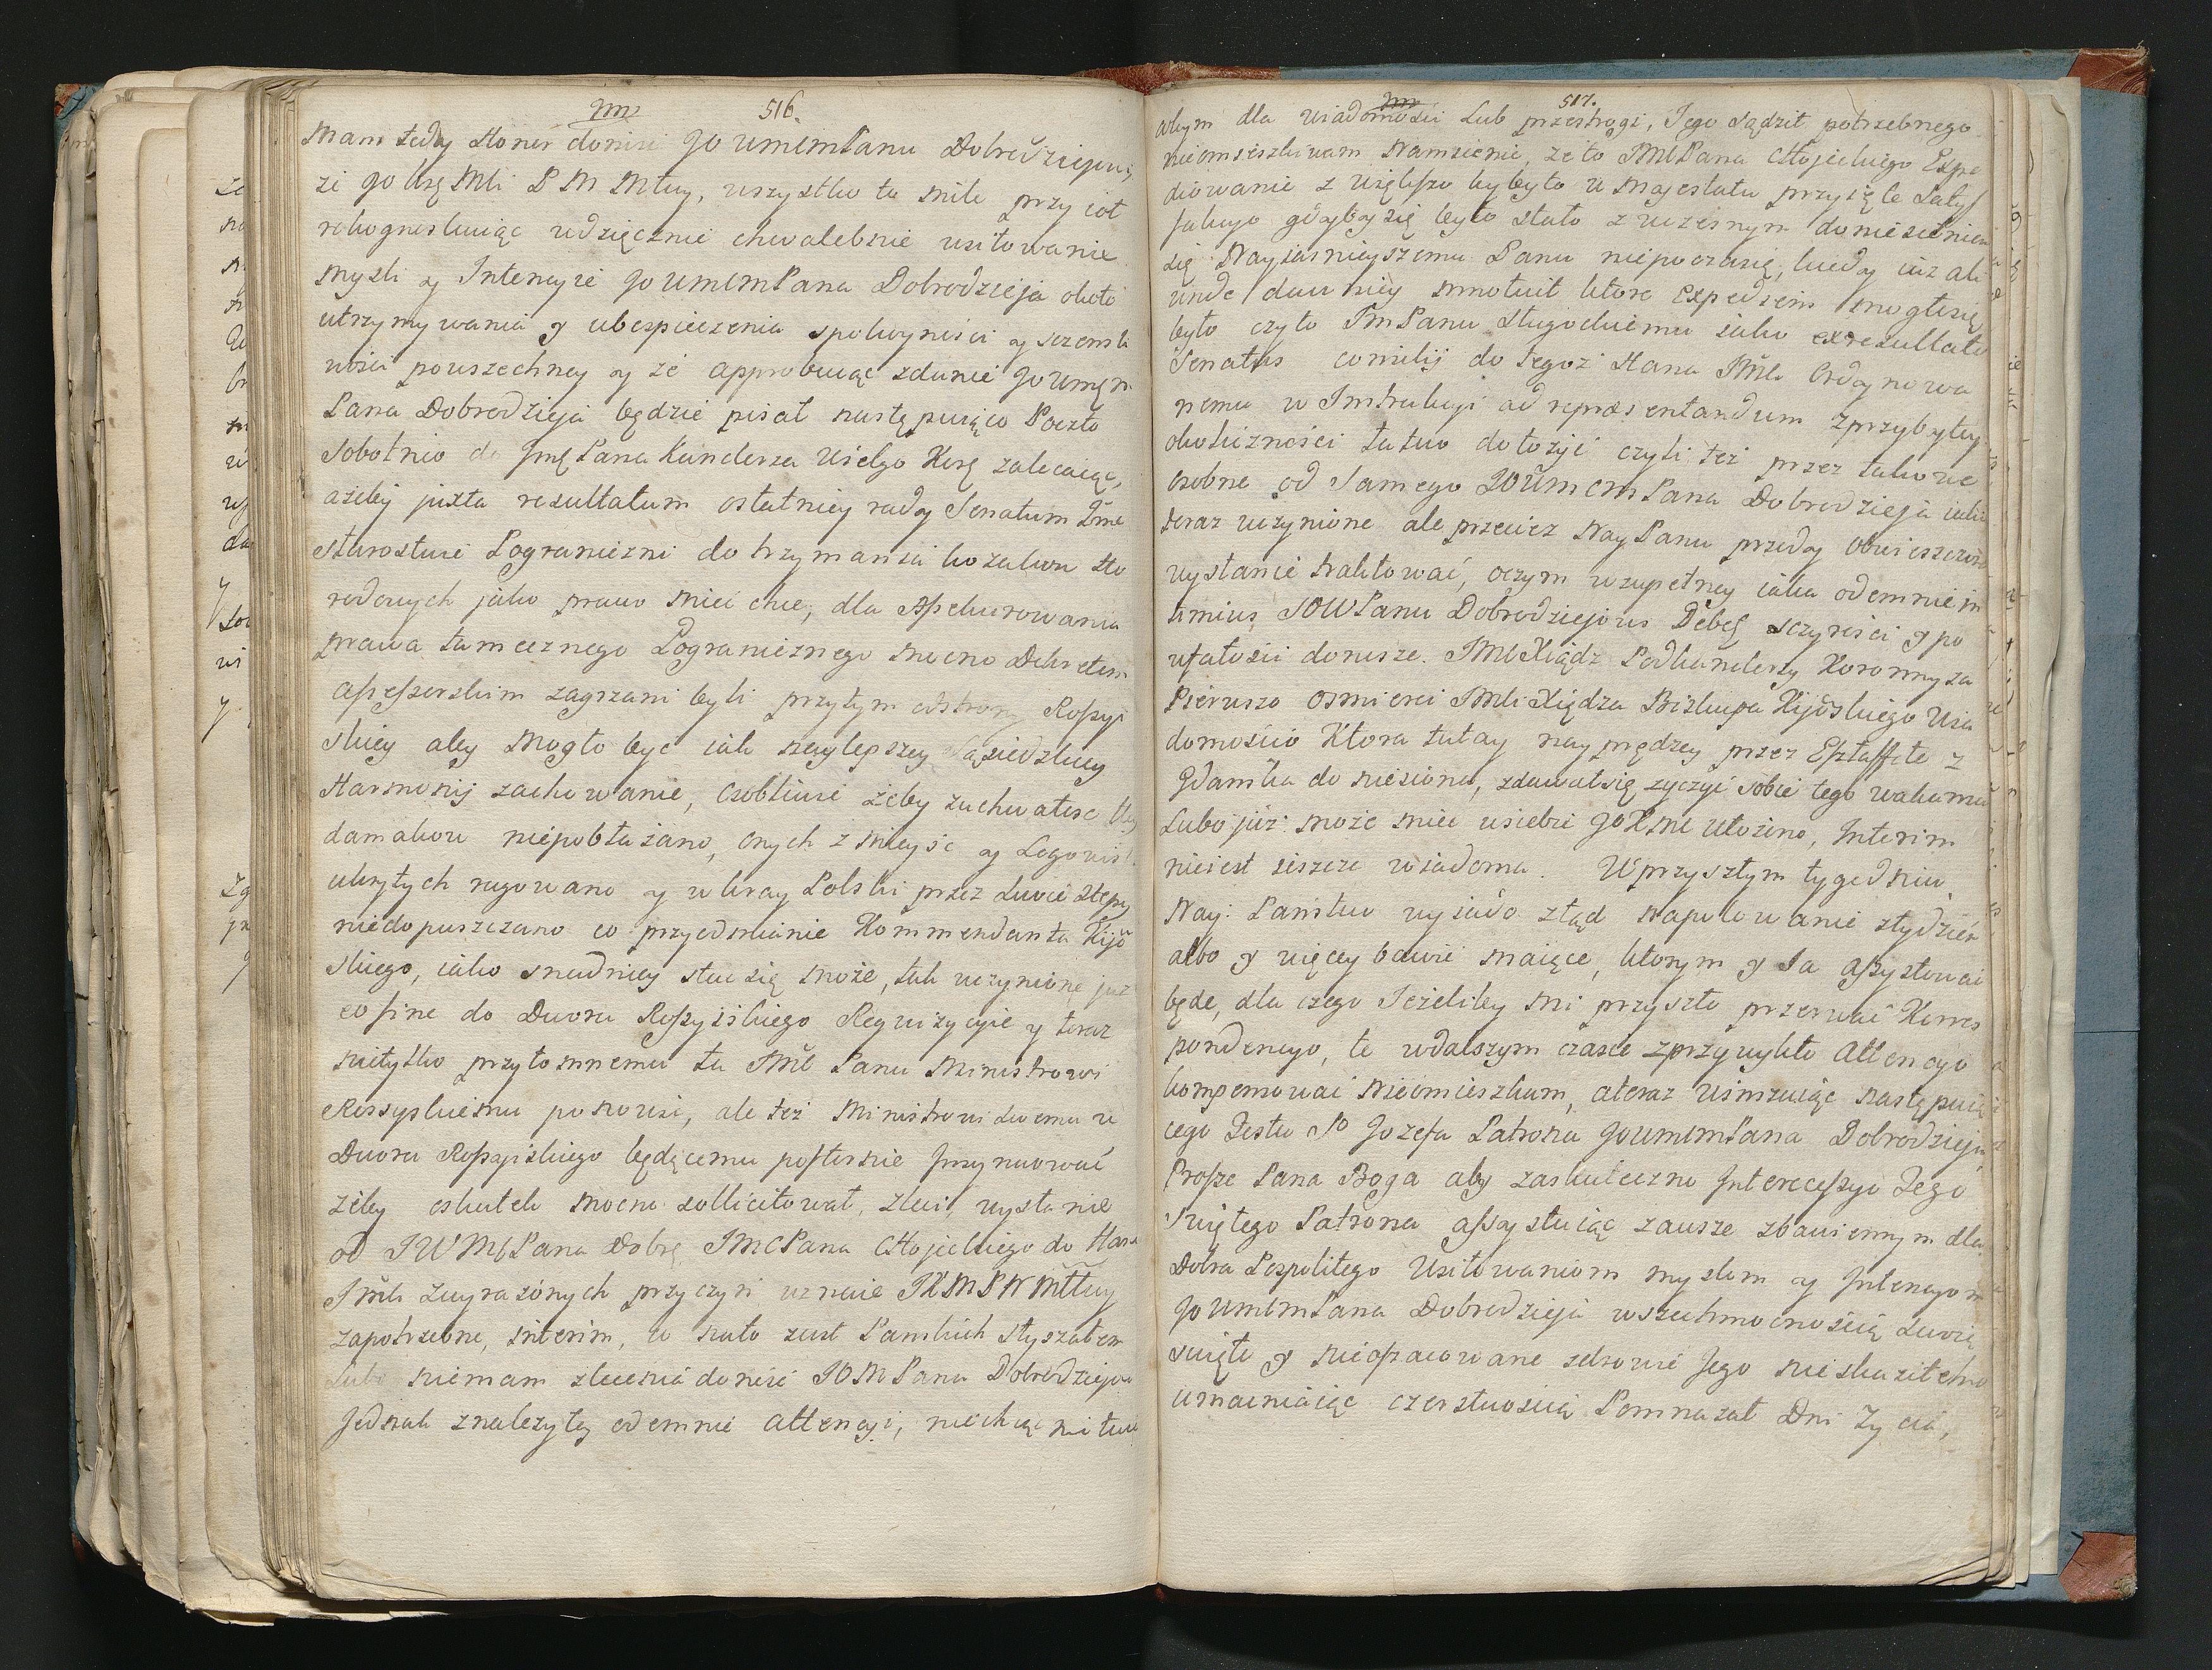 516.
Mam tedy Honor donieść JOWMCMPanu Dobrodziejowi,
że JOKsę Mli P M Młwy, wszystko to mile przyioł
rekognoskuiąc wdzięcznie chwalebnie usitowanie
mysli y Intencyie JOWMCMPana Dobrodzieja około
utrzymywania y ubespieczenia spokoyności y szczęśli
wości powszechney y że approbuiąc zdanie JOWMCM
Pana Dobrodzieja będzie pisał następuiąco Pocztą
Sobotnio do Jmę Pana Kanclerza Wielgo Korę zalecaiąc,
ażeby juxta resultatum ostatniey rady Senatum Jme
Starostwie Pograniczni do trzymania kozakow Ho
rodowych jako prawo mieć chce, dla Assekurowania
prawa tamecznego Pogranicznego mocno Dekretem
assessorskim zagrzani byli przytym od strony Rossyi
skiey aby mogło być iak naylepszey Sąsiedzkiey
Harmonij zachowanie, osobliwie żeby zuchwałosc Hay
damakow niepobłażano, onych z mieysc y Legowisk
ukrytych rugowano y w kray Polski przez swoie Stepy
niedopuszczano co przyedmianie Kommendanta Kijo
skiego, iako snadniey stac się może, tak uczynione już
eo fine do Dworu Rossyiskiego Requizycyie y teraz
nietylko przytomnemu tu JMĆ Panu Ministrowi
Rossyskiemu ponowić, ale też Ministrowi swemu u
Dworu Rossyiskiego będącemu posternie Jnynuować
żeby oskutek mocno sollicitował, zkąd wysłanie
od JWMPana Dobrę JMCPana Chojeckiego do Hana
JMli zwyrażonych przyczyn uznaie JKMPNMłłwy
zapotrzebne, interim, co nato zust Panskich słyszałem
Lubo niemam zlecenia donieść JOMPanu Dobrodziejowi
Jednak znależytey odemnie attencyi, niechcąc nitwie
517.
okym dla wiadomości Lub przestrogi, Jego sądził potrzebnego
nieomieszkiwam Namienić, że to JMCPana Chojeckiego Expe
diowanie z większo byłoby to u Majestatu przyięte Satys
fakcyo gdyby się było stało z wczesnym doniesieniem
się Nayiasnieyszemu Panu niepoczasię, kiedy iuz ali
unde dawniey smotuit ktore Expediem mogło się
było czyto JmPanu Długockiemu iako ex resultato
Senatus consilij do tegoż Hana JMli Ordynowa
nemu w Instrukcyi ad repræsentandum zprzybyłey
okoliczności łatwo dołożyć czyli też przez takowe
osobne od samego JOWMCMPana Dobrodzieja iakie
teraz uczynione ale przecież NayPanu przedy obwieszczone
wysłanie traktować, oczym wzupełney iaka odemnie in
timius JOWPanu Dobrodziejowi Debes szczyrości y po
ufałości donosze. JMCXiądz Podkanclerzy Koronny za
Pierwszo osmierci JMCi Xiędza Biskupa Kijoskiego Wia
domością Ktora tutay nayprędzey przez Esztaffete z
Gdanska doniesiona, zdawałsię zyczyć sobie tego wakansu
Lubo już może miec usiebie JOKMC Ułożeno, Interim
nieiest ieszcze wiadoma. Wprzyszłym tygodniu,
Nay: Państwo wyiado ztąd napolowanie ztydzień
albo y więcey bawić maiące, ktorym y Ja assystować
będe, dla czego Jeżeliby mi przyszło przerwać Korres
pondencyo, te wdalszym czasie zprzywykło Attencyo
kompensować Nieomieszkam, ateraz winszuiąc następuią
cego Festu So Jozefa Patrona JOWMCMPana Dobrodzieja,
Prosze Pana Boga aby zaskuteczno Intercessyo Tego
Swiętego Patrona assystuiąc zawsze zbawiennym dla
Dobra Pospolitego Usitowaniom myslom y Intencyom
JOWMCMPana Dobrodzieja wszechmocnością swoią
święto y nieopracowane zdrowie Jego nieskazitelno
umacniaiąc czerstwością Pomnażał Dni Życia,